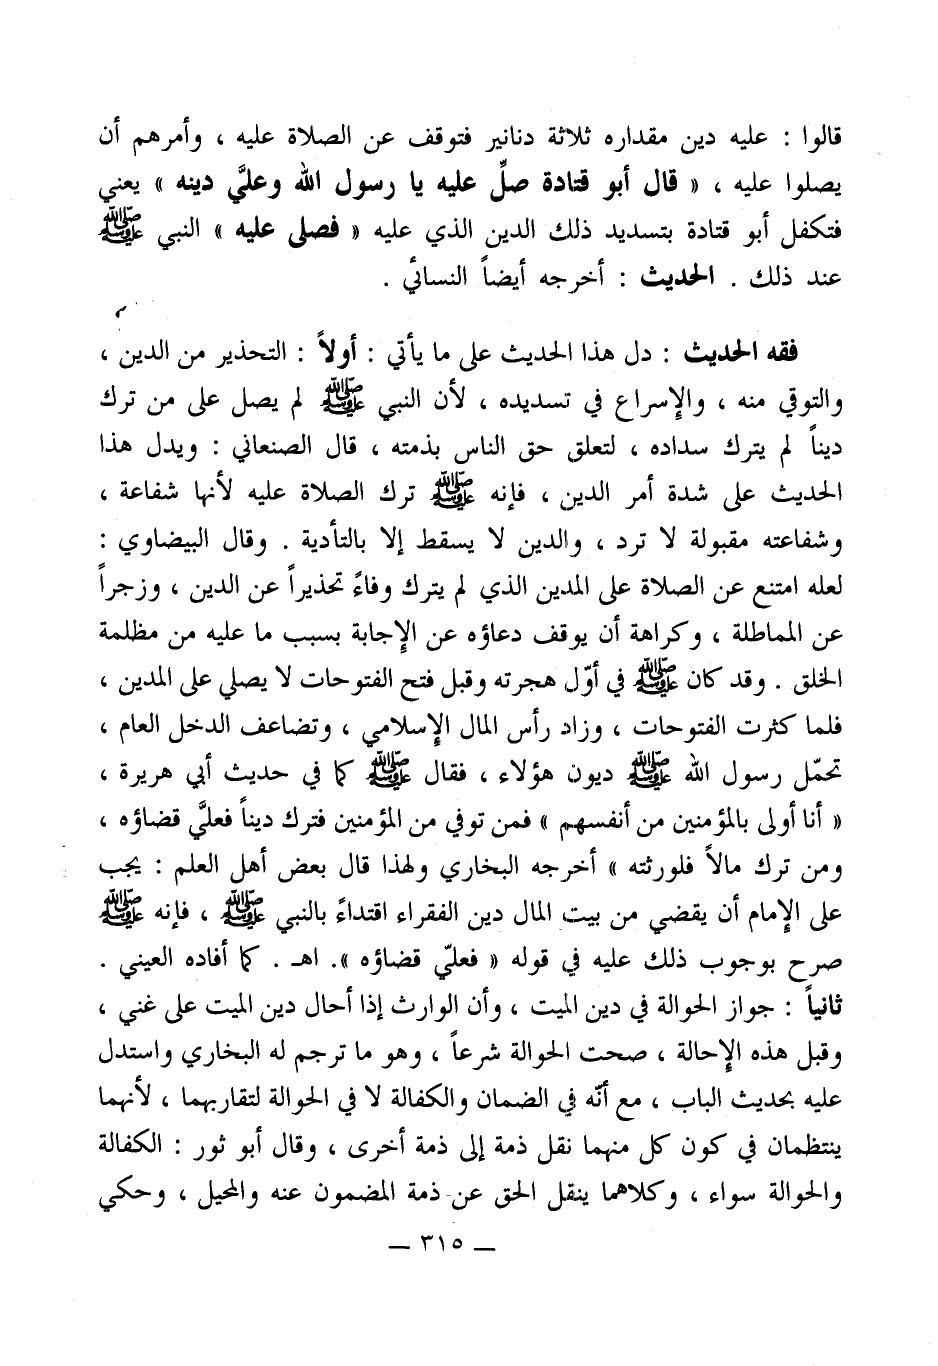 قالوا : عليه دين مقداره ثلاثة دنانير فتوقف عن الصلاة عليه ، وأمرهم أن
يصلوا عليه ، « قال أبو قتادة صلِّ عليه يا رسول الله وعليَّ دينه » يعني
فتكفل أبو قتادة بتسديد ذلك الدين الذي عليه « فصلى عليه » النبي ﷺ
عند ذلك . الحديث : أخرجه أيضاً النسائي .
فقه الحديث : دل هذا الحديث على ما يأتي : أولاً : التحذير من الدين ،
والتوقي منه ، والإسراع في تسديده ، لأن النبي ﷺ لم يصل على من ترك
ديناً لم يترك سداده ، لتعلق حق الناس بذمته ، قال الصنعاني : ويدل هذا
الحديث على شدة أمر الدين ، فإنه ﷺ ترك الصلاة عليه لأنها شفاعة ،
وشفاعته مقبولة لا ترد ، والدين لا يسقط إلا بالتأدية . وقال البيضاوي :
لعله امتنع عن الصلاة على المدين الذي لم يترك وفاءً تحذيراً عن الدين ، وزجراً
عن المماطلة ، وكراهة أن يوقف دعاؤه عن الإجابة بسبب ما عليه من مظلمة
الخلق . وقد كان ﷺ في أوّل هجرته وقبل فتح الفتوحات لا يصلي على المدين ،
فلما كثرت الفتوحات ، وزاد رأس المال الإسلامي ، وتضاعف الدخل العام ،
تحمّل رسول الله ﷺ ديون هؤلاء ، فقال ﷺ كما في حديث أبي هريرة ،
« أنا أولى بالمؤمنين من أنفسهم » فمن توفي من المؤمنين فترك ديناً فعليَّ قضاؤه ،
ومن ترك مالاً فلورثته » أخرجه البخاري ولهذا قال بعض أهل العلم : يجب
على الإمام أن يقضي من بيت المال دين الفقراء اقتداءً بالنبي ﷺ ، فإنه ﷺ
صرح بوجوب ذلك عليه في قوله « فعليّ قضاؤه ». اهـ . كما أفاده العيني .
ثانياً : جواز الحوالة في دين الميت ، وأن الوارث إذا أحال دين الميت على غني ،
وقبل هذه الإحالة ، صحت الحوالة شرعاً ، وهو ما ترجم له البخاري واستدل
عليه بحديث الباب ، مع أنّه في الضمان والكفالة لا في الحوالة لتقاربهما ، لأنهما
ينتظمان في كون كل منهما نقل ذمة إلى ذمة أخرى ، وقال أبو ثور : الكفالة
والحوالة سواء ، وكلاهما ينقل الحق عن ذمة المضمون عنه والمحيل ، وحكي
— ٣١٥ —